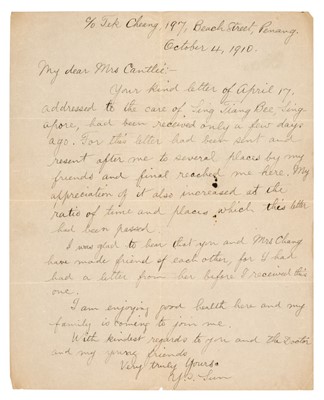 c/o Tek Cheong, 197, Beach Street, Penang.
October 4, 1910.
My dear Mrs Cantlie:-
Your kind letter of April 17,
addressed to the care of Ling Tiang Bee, Sing-
apore, had been received only a few days
ago. For this letter had been sent and
resent after me to several places by my
friends and final reached me here. My
appreciation of it also increased at the
ratio of time and places which this letter
had been passed.
I was glad to hear that you and Mrs Chang
have made friend of each other, for I had
had a letter from her before I received this
one.
I am enjoying good health here and my
family is coming to join me.
With kindest regards to you and the Doctor
and my young friends
Very truly Yours
Y. S. Sun